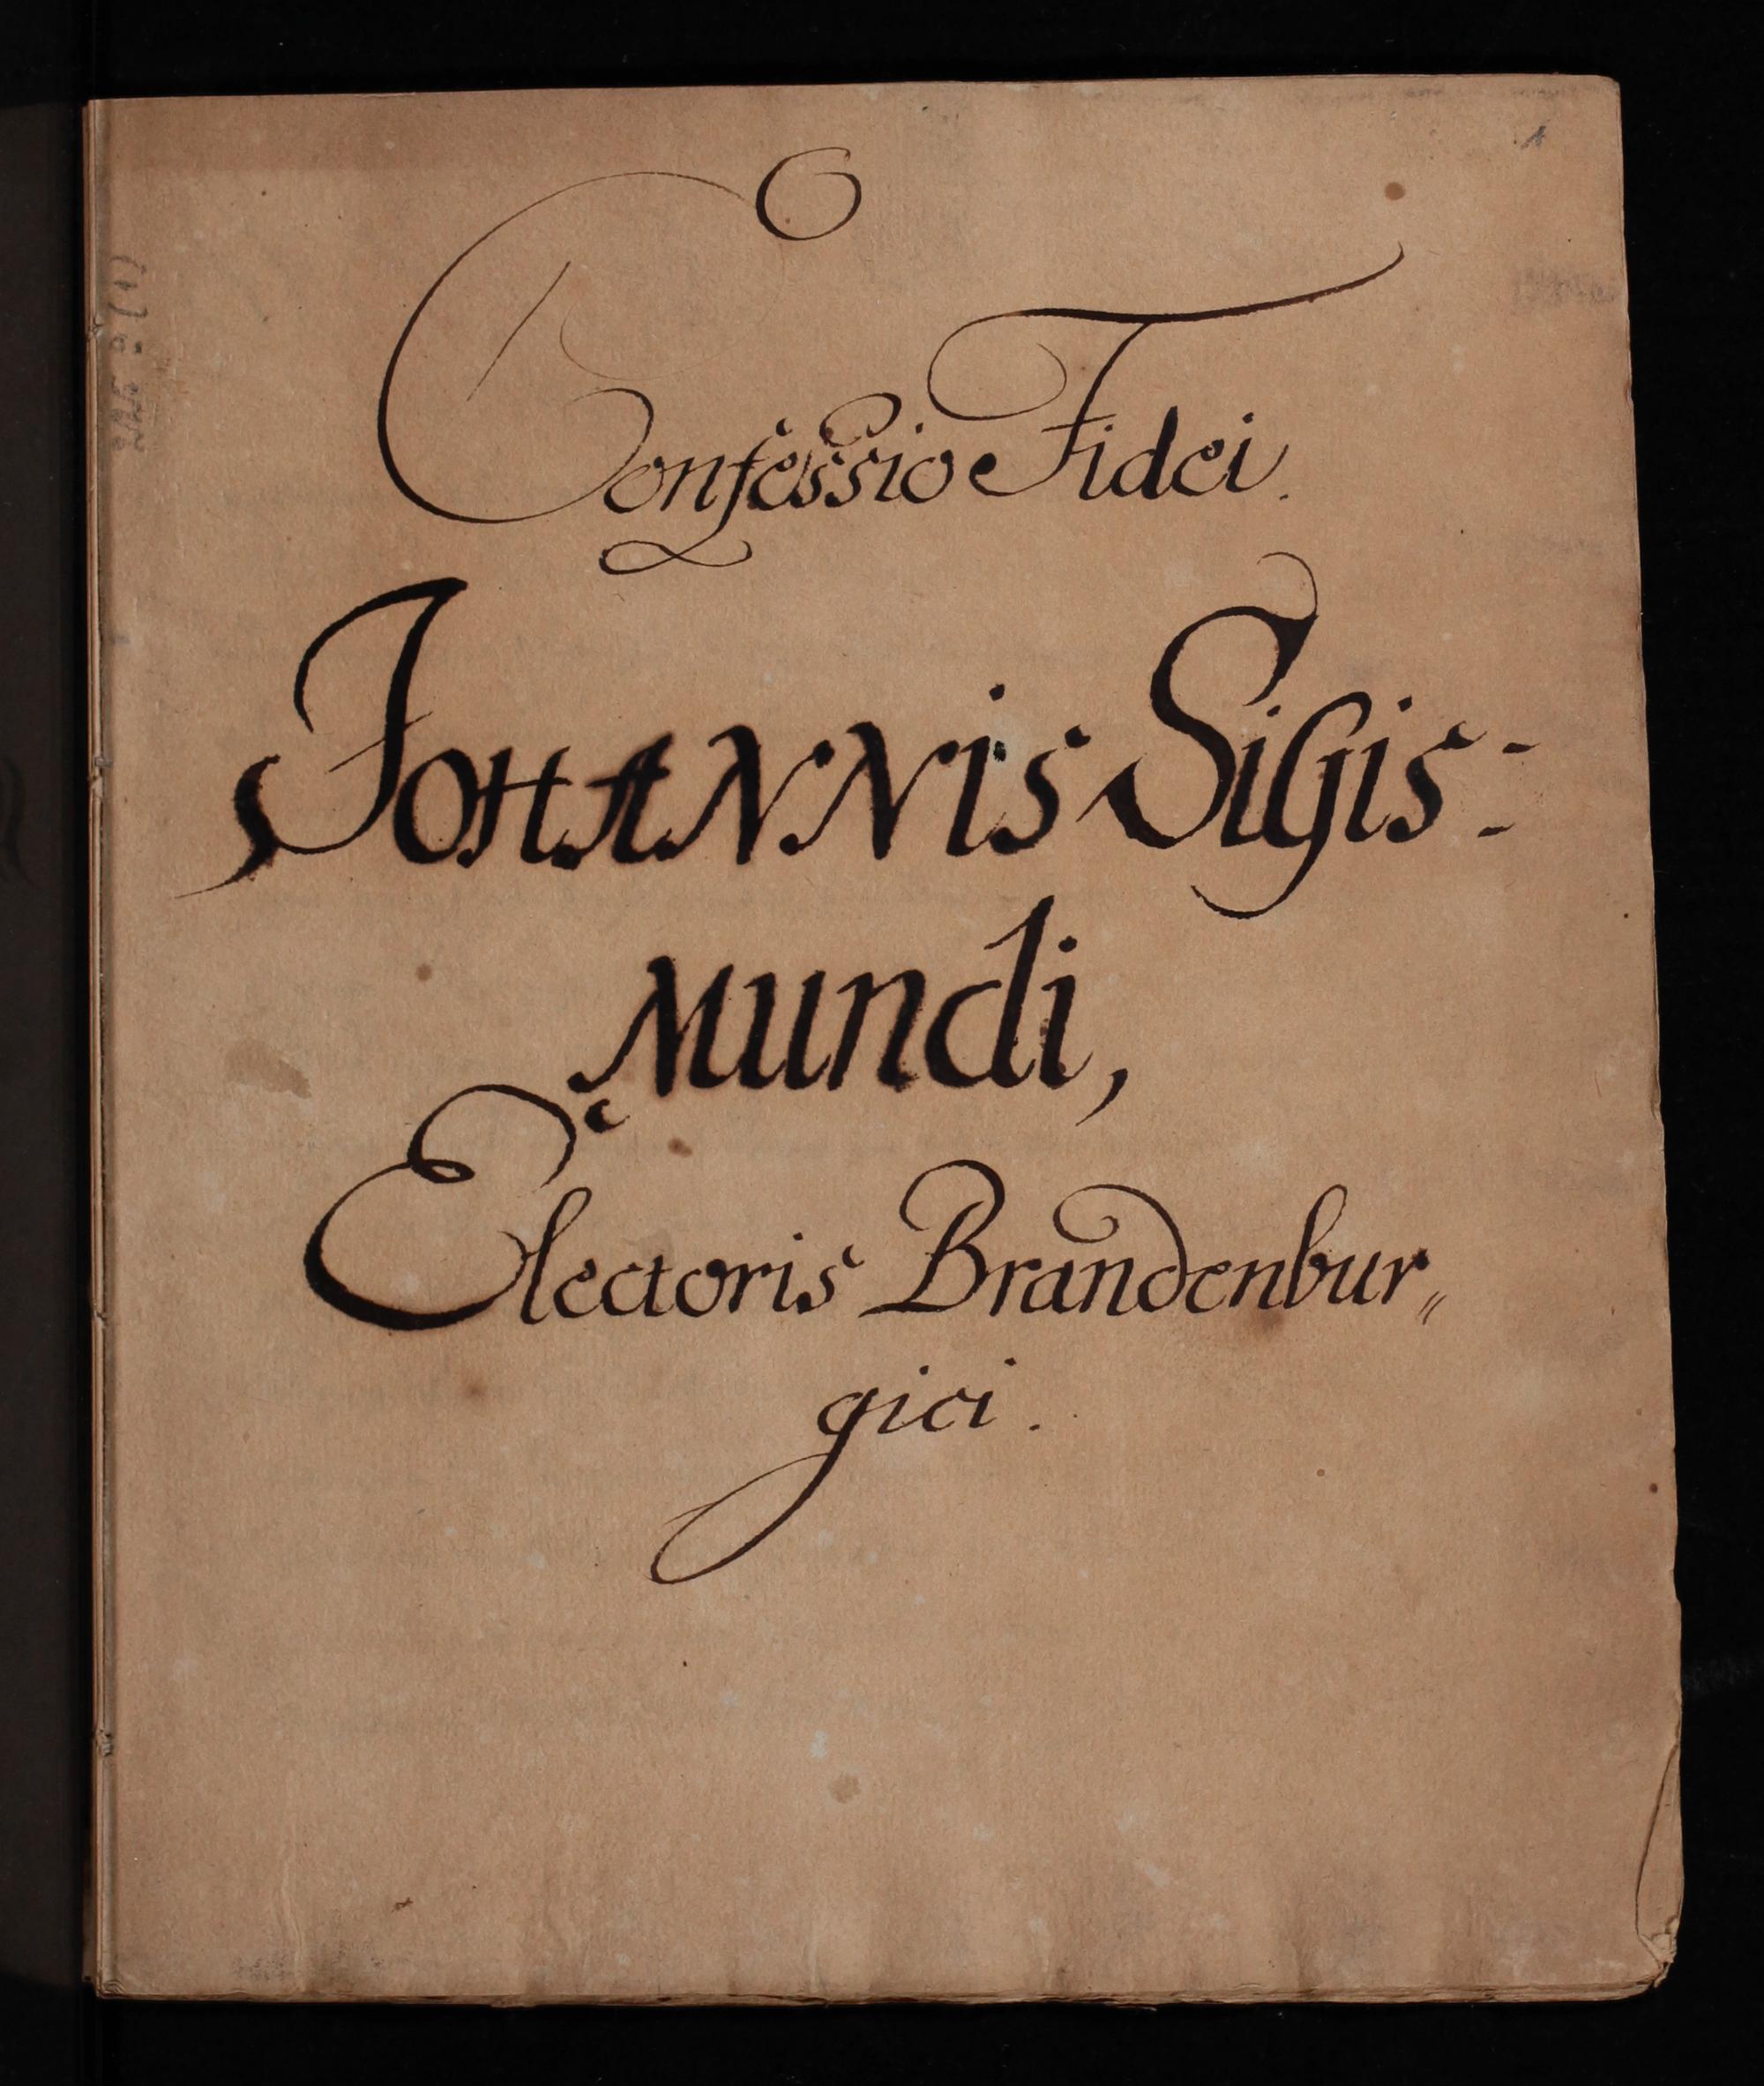 Confessio Fidei.
Johannis Sigis=
mundi,
Electoris Brandenbur„
gici.